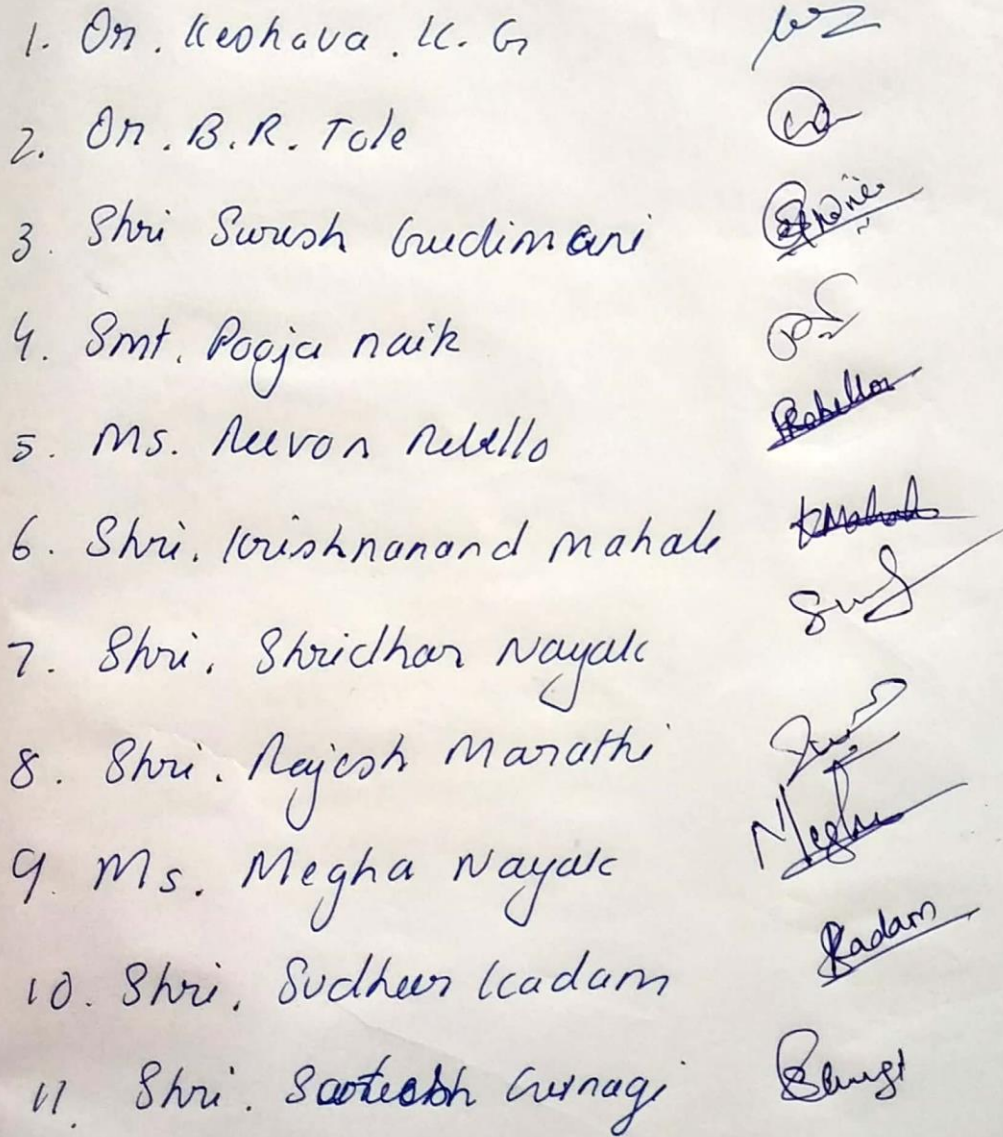 1. Dr. Keshava. K. G
2. Dr. B.R. Tole
3. Shri Suresh Gudimani
4. Smt. Pooja naik
5. Ms. Reevon Rebello Rebello
6. Shri. Krishnanand Mahale KMahale
7. Shri. Shridhar Nayak
8. Shri. Rajesh Marathi
9. Ms. Megha Nayak Megha
10. Shri. Sudheer Kadam Kadam
11. Shri. Santosh